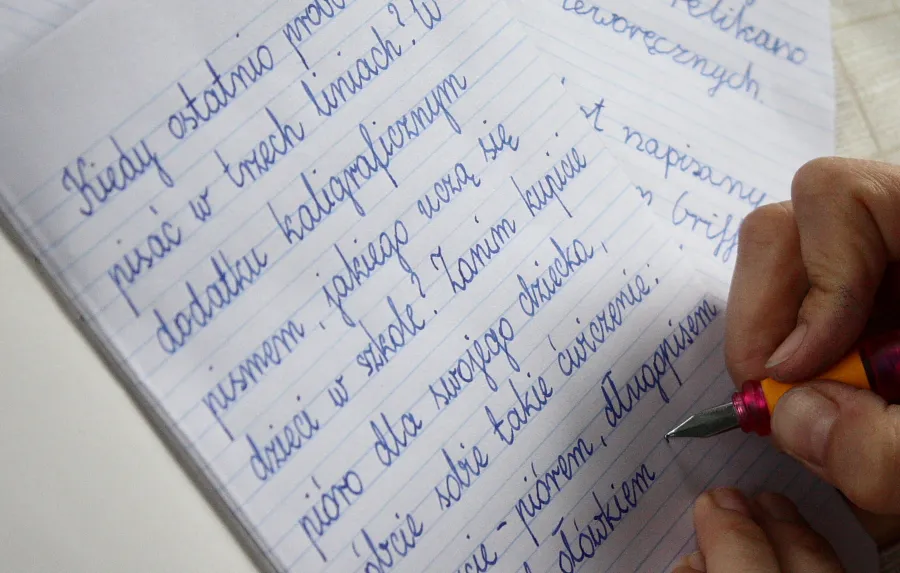 Kiedy ostatnio
pisać w trzech liniach? W
dodatku kaligraficznym
pismem, jakiego uczą się
dzieci w szkole? Zanim kupicie
pióro dla swojego dziecka,
sobie takie ćwiczenie:
piórem, długopisem
ołówkiem
Pelikano
leworęcznych.
napisany